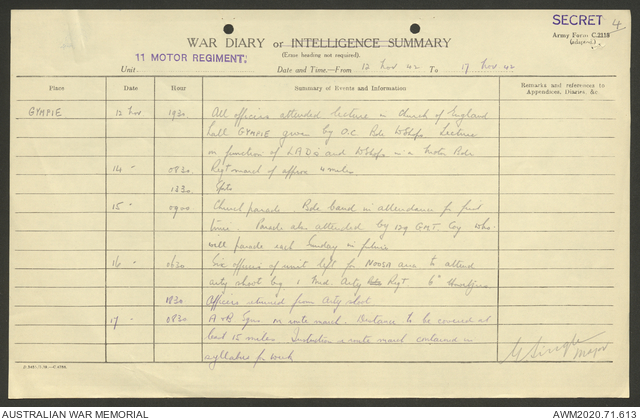 SECRET 4
WAR DIARY or INTELLIGENCE SUMMARY
Army Form C.2118
(adapted.)
(Erase heading not required).
11 MOTOR REGIMENT.
Unit
Date and Time—From 12 Nov 42 To 17 Nov 42
Place Date Hour Summary of Events and Information Remarks and references to Appendices, Diaries, &c.
GYMPIE 12 Nov 1930 All officers attended lecture in Church of England
hall GYMPIE given by O.C. Bde WShops Lecture
on function of LADs and WShops in a Motor Bde
14 " 0830 Regt march of approx 4 miles
1330
15 " 0900 Church parade Bde band in attendance for first
time. Parade also attended by 129 G.M.T. Coy who
will parade each Sunday in future
16 " 0630 Six officers of unit left for NOOSA area to attend
arty shoot by 1 Arty Regt 6"
1830 Officers returned from arty shoot
17 " 0830 A & B Sqns on route march. Distance to be covered at
least 15 miles. Instruction in route march contained in
syllabus for week
Major
AUSTRALIAN WAR MEMORIAL AWM2020.71.613